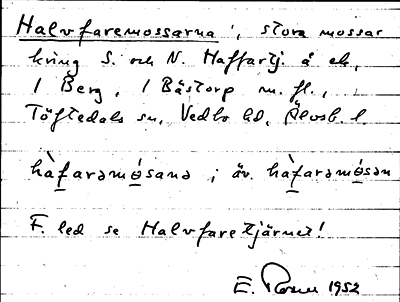 Halvfaremossarna, stora mossar
kring S. och N. Haffartj. å ek.
1 Berg, 1 Båstorp m. fl.,
Töftedals sn, Vedbo hd, Älvsb. l.
hàfaramósana ; äv. hàfaramósan
F. led se Halvfaretjärnet!
E. 1952